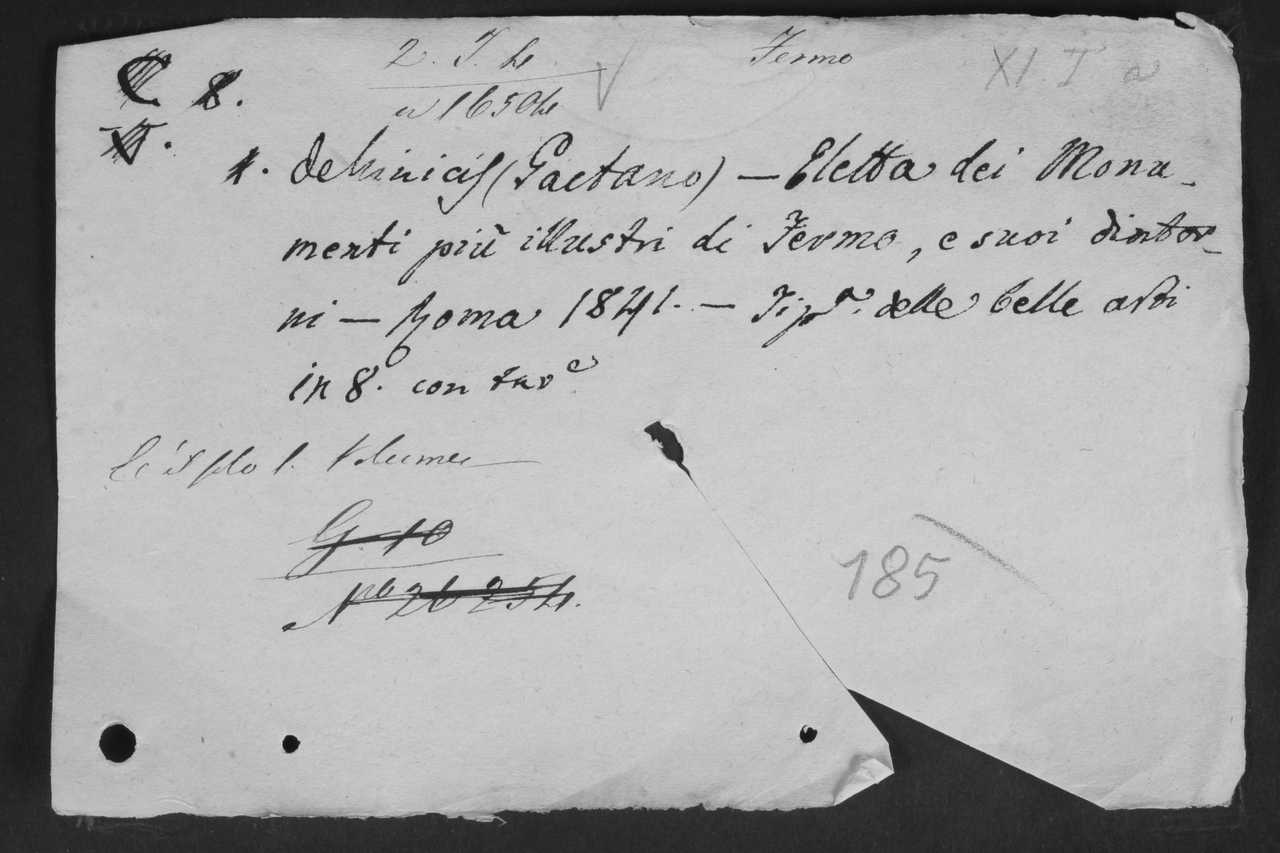 2. T. h. Fermo XI. I a
C 8.
n 16504
V.
1. DeMinicis (Gaetano) — Eletta dei Monu-
menti più illustri di Fermo, e suoi dintor-
ni — Roma 1841. — Tipa. delle belle arti
in 8. con tave
C'è il solo 1. Volume
G. 10
No 26254.
185